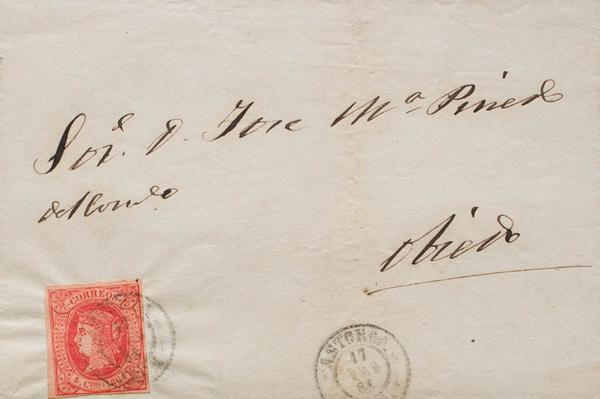 Sor. D. Jose Mª Pinedo
Obiedo
CORREOS
4 Cuartos
ASTORGA
17